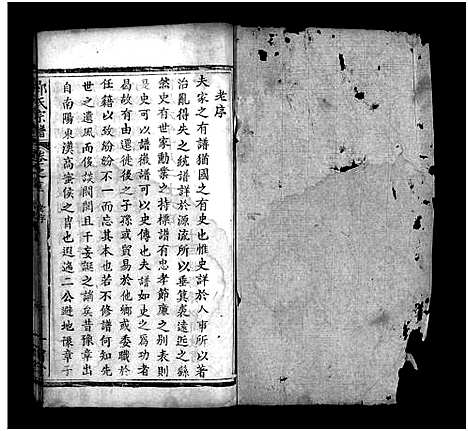 老序
夫家之有譜猶國之有史也惟史詳於人事所以著
治亂得失之統譜詳於源流所以垂箕裘遠近之緜
然史有世家勳業之持標譜有忠孝節廉之別表則
是史可以譜徵譜可以史傳也夫譜如史之為功者
曷故有由遷徙後之子孫或貿易於他鄉或委職於
任籍以故紛紛不一而忘其本也若不修譜何知先
世之遺風而侈談閥閱且千妄誕之誚矣昔豫章出
自南陽東漢高蜜侯之胄也迨逸二公避地豫章子
氏宗譜